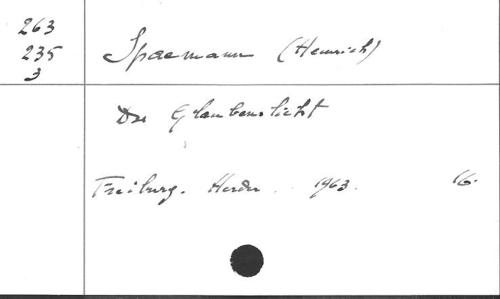 263
235
3
Spaemann (Heinrich)
Das Glaubenslicht
Freiburg. Herder. 1963. 16.